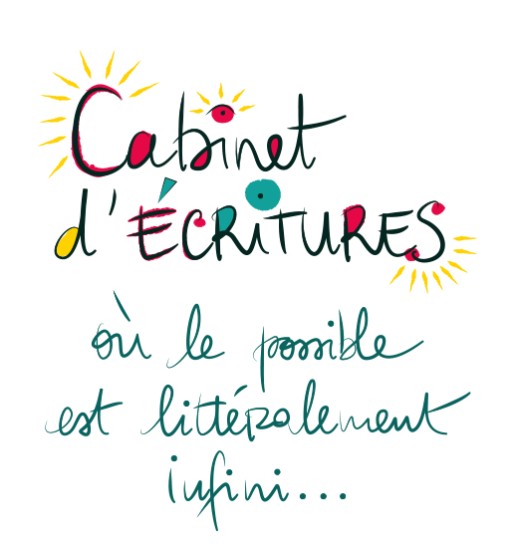 Cabinet
d'ÉCRiTURES
où le possible
est littéralement
infini...